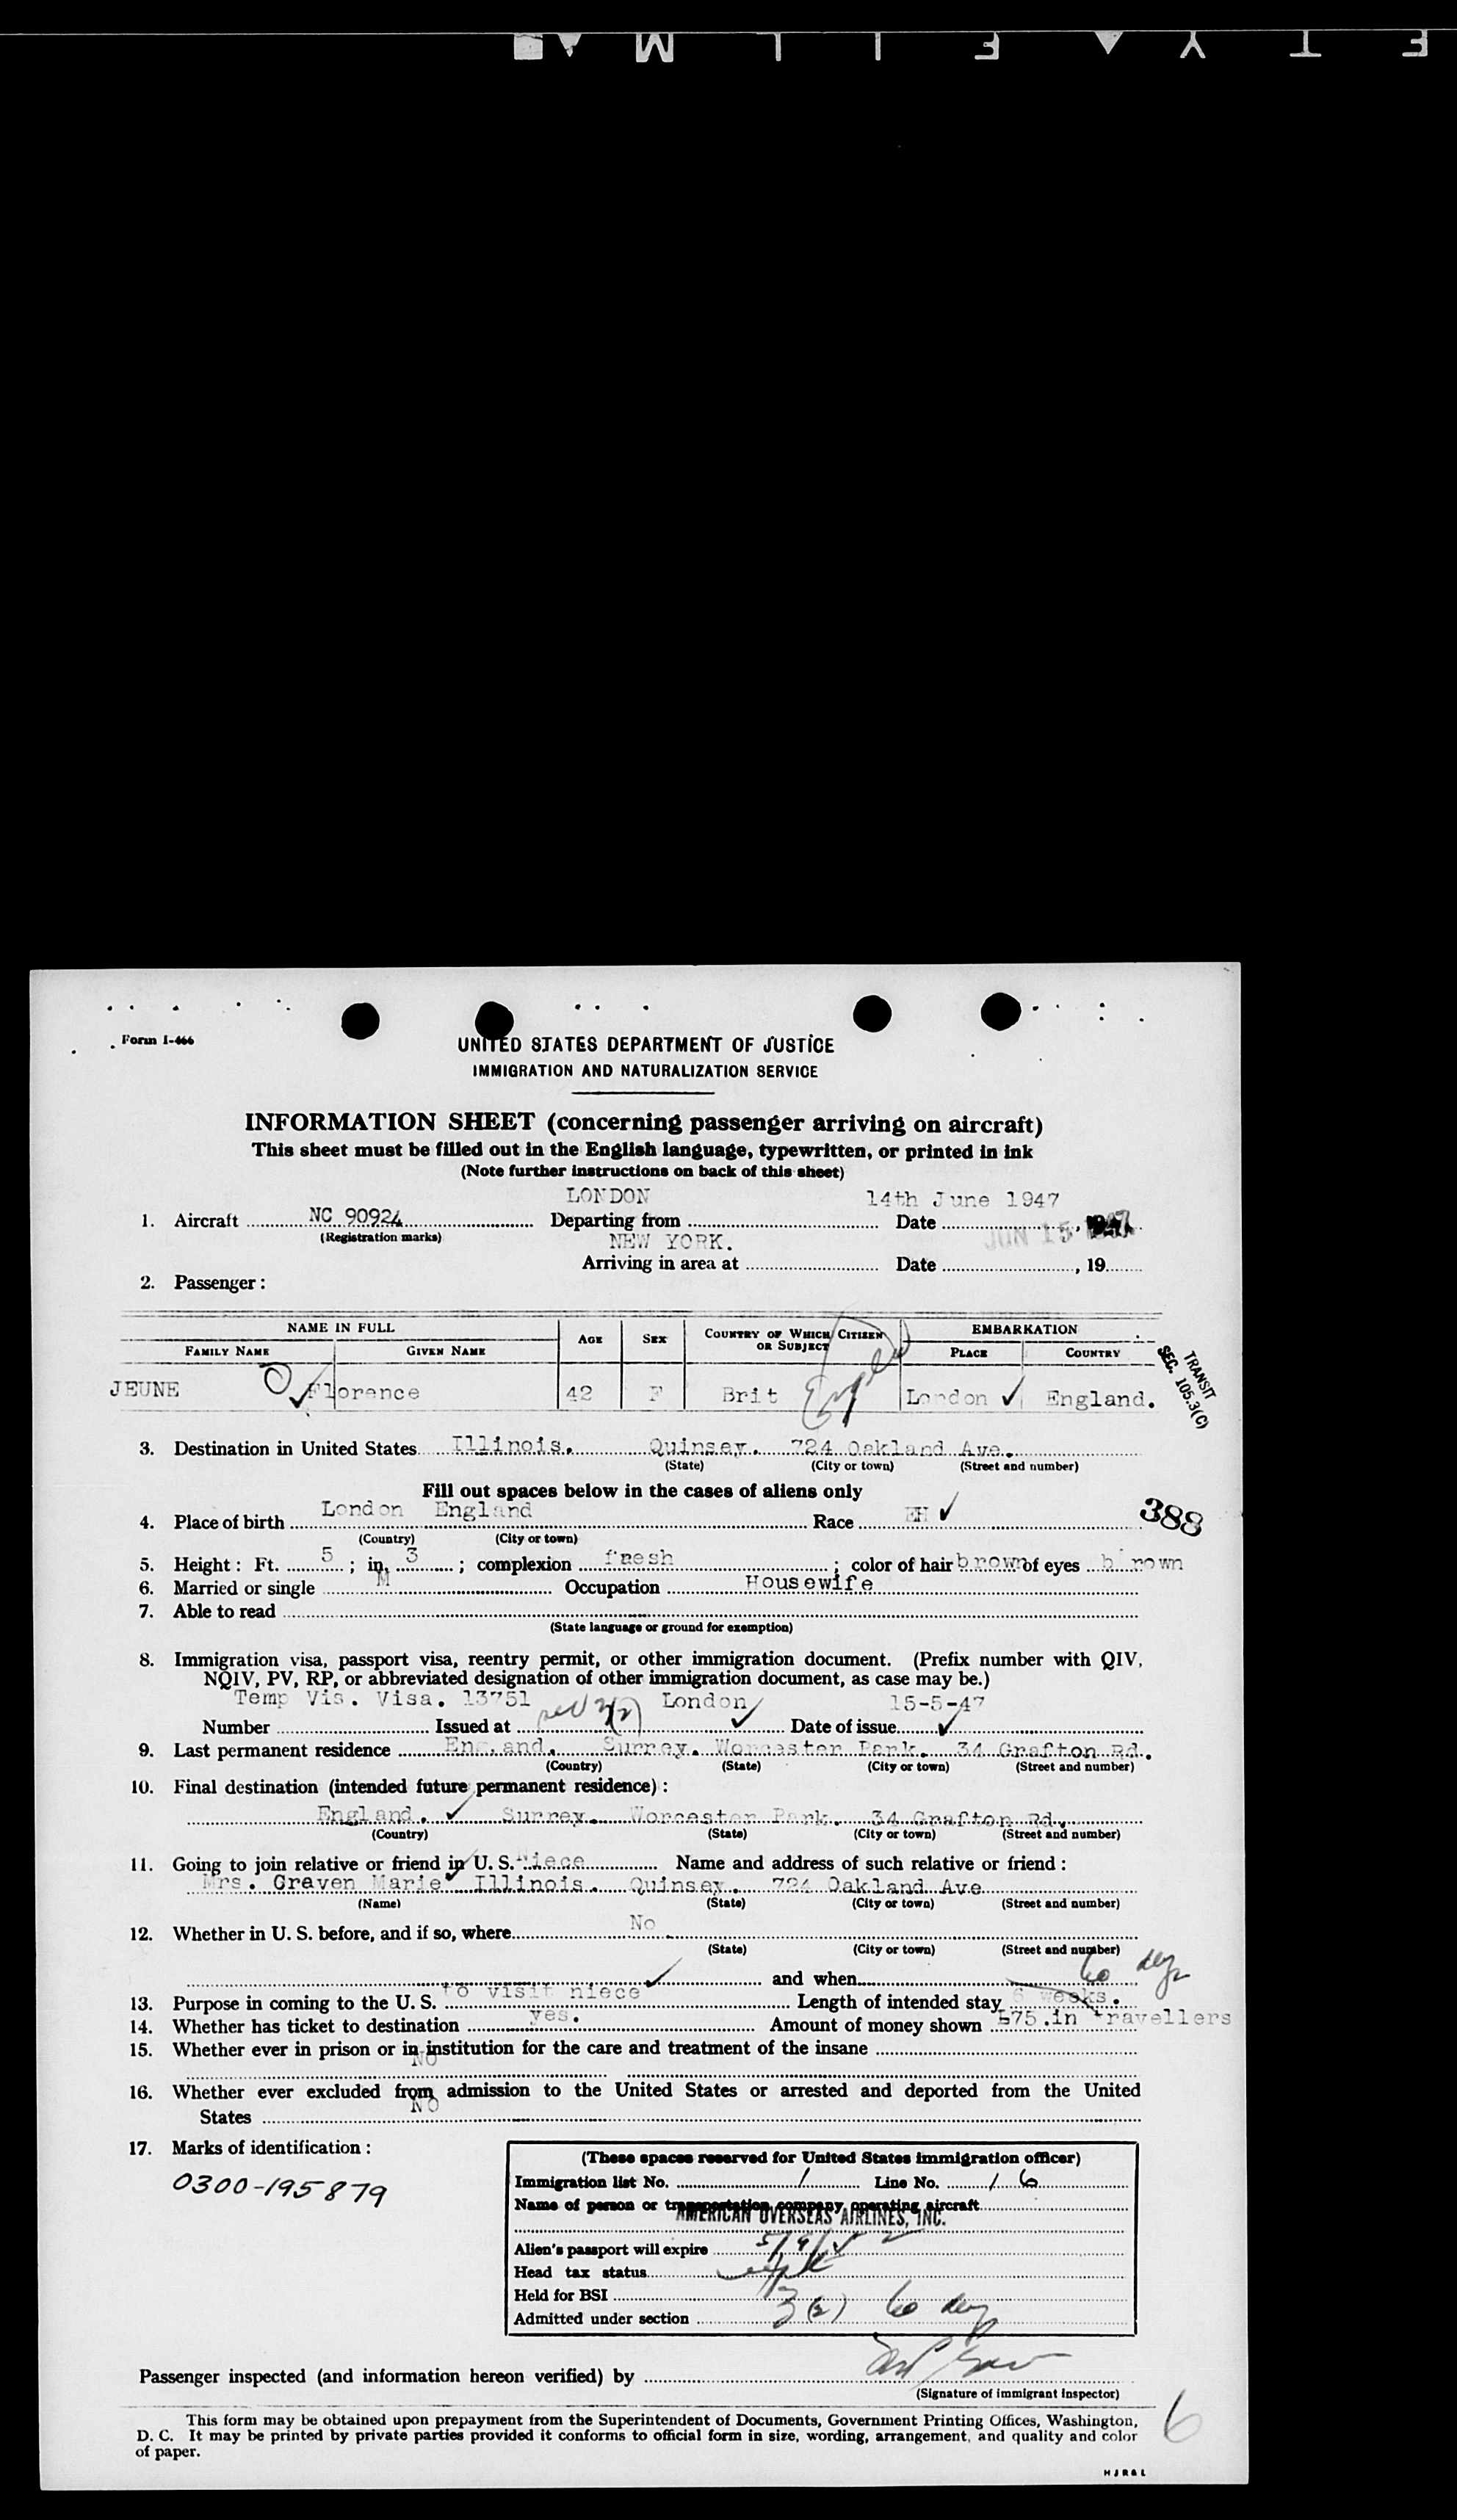 E T Y ▲ E L L M
Form I-466
UNITED STATES DEPARTMENT OF JUSTICE
IMMIGRATION AND NATURALIZATION SERVICE
INFORMATION SHEET (concerning passenger arriving on aircraft)
This sheet must be filled out in the English language, typewritten, or printed in ink
(Note further instructions on back of this sheet)
LONDON 14th June 1947
1. Aircraft NC 90924 Departing from Date
(Registration marks) NEW YORK. JUN 15 1947
Arriving in area at Date , 19
2. Passenger:
NAME IN FULL AGE SEX COUNTRY OF WHICH CITIZEN OR SUBJECT EMBARKATION
FAMILY NAME GIVEN NAME PLACE COUNTRY
TRANSIT
SEC. 105.3(C)
JEUNE Florence 42 F Brit London ✓ England.
3. Destination in United States Illinois. Quinsey. 724 Oakland Ave.
(State) (City or town) (Street and number)
Fill out spaces below in the cases of aliens only
London England
4. Place of birth Race EH ✓ 388
(Country) (City or town)
5. Height: Ft. 5 ; in. 3 ; complexion fresh ; color of hair brown of eyes brown
6. Married or single M Occupation Housewife
7. Able to read
(State language or ground for exemption)
8. Immigration visa, passport visa, reentry permit, or other immigration document. (Prefix number with QIV,
NQIV, PV, RP, or abbreviated designation of other immigration document, as case may be.)
Temp Vis. Visa. 13751 London 15-5-47
Number Issued at Date of issue
9. Last permanent residence England. Surrey. Worcester Park. 34 Grafton Rd.
(Country) (State) (City or town) (Street and number)
10. Final destination (intended future permanent residence):
England. ✓ Surrey. Worcester Park. 34 Grafton Rd.
(Country) (State) (City or town) (Street and number)
11. Going to join relative or friend in U. S. Niece Name and address of such relative or friend:
Mrs. Craven Marie Illinois. Quinsey. 724 Oakland Ave
(Name) (State) (City or town) (Street and number)
12. Whether in U. S. before, and if so, where No
(State) (City or town) (Street and number)
and when 60 days
13. Purpose in coming to the U. S. to visit niece Length of intended stay 6 weeks.
14. Whether has ticket to destination yes. Amount of money shown £75.in travellers
15. Whether ever in prison or in institution for the care and treatment of the insane
NO
16. Whether ever excluded from admission to the United States or arrested and deported from the United
States NO
17. Marks of identification:
0300-195879
(These spaces reserved for United States immigration officer)
Immigration list No. 1 Line No. 16
Name of person or transportation company operating aircraft
AMERICAN OVERSEAS AIRLINES, INC.
Alien's passport will expire
Head tax status
Held for BSI
Admitted under section 3(2) 60 days
Passenger inspected (and information hereon verified) by
(Signature of immigrant inspector)
6
This form may be obtained upon prepayment from the Superintendent of Documents, Government Printing Offices, Washington,
D. C. It may be printed by private parties provided it conforms to official form in size, wording, arrangement, and quality and color
of paper.
H J R & L